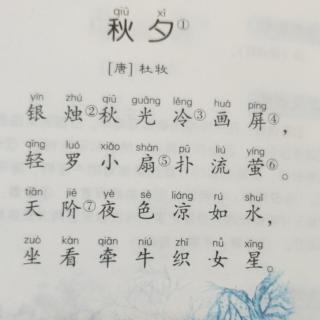 qiū xī
秋夕①
[唐]杜牧
yín zhú qiū guāng lěng huà píng
银烛②秋光冷③画屏④，
qīng luó xiǎo shàn pū liú yíng
轻罗小扇⑤扑流萤⑥。
tiān jiē yè sè liáng rú shuǐ
天阶⑦夜色凉如水，
zuò kàn qiān niú zhī nǚ xīng
坐看牵牛织女星。